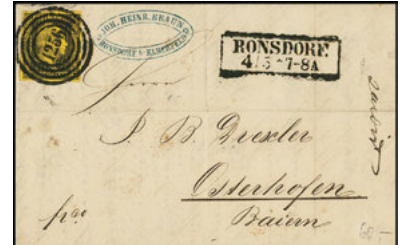 JOH. HEINR. BRAUN
RONSDORF & ELBERFELD
1250
RONSDORF.
4/5 *7-8A
Herrn
J. B. Drexler
Osterhofen
Baiern
frco